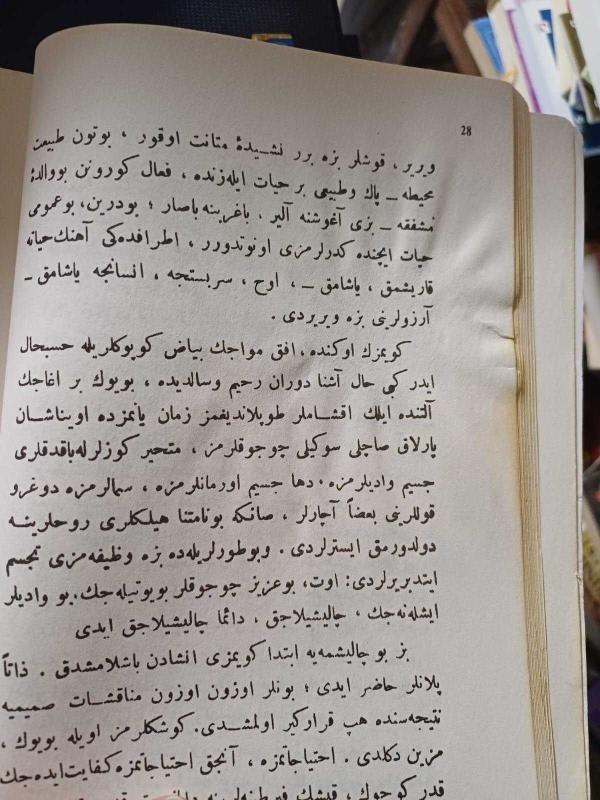 28
ويرير ، قوشلر بزه برر نشيدهٔ متانت اوقور ، بوتون طبيعت
محيطه ــ پاك وطبيعى بر حيات ايله‌زنده ، فعال كورونن بووالدهٔ
مشفقه ــ بزى آغوشنه آلير ، باغرينه‌باصار ؛ بودرين، بوعمومى
حيات ايچنده كدرلرمزى اونوتدورر ، اطرافده‌كى آهنك حياته
قاريشمق ، ياشامق ــ ، اوح ، سربستجه ، انسانجه ياشامق ــ
آرزولرينى بزه ويريردى .
كويمزك اوكنده، افق مواجك بياض كوپوكلريله حسبحال
ايدر كبى حال آشنا دوران رحيم وسالديده ، بويوك بر اغاجك
آلتنده ايلك اقشاملر طوپلانديغمز زمان يانمزده اويناشان
پارلاق صاچلى سوكيلى چوجوقلرمز ، متحير كوزلرله‌باقدقلرى
جسيم واديلرمزه . دها جسيم اورمانلرمزه ، سمالرمزه دوغرو
قوللرينى بعضاً آچارلر ، صانكه بونامتنا هيلكلرى روحلرينه
دولدورمق ايسترلردى . وبوطورلريله‌ده بزه وظيفه‌مزى تجسم
ايتديريرلردى: اوت، بوعزيز چوجوقلر بويوتيله‌جك، بو واديلر
ايشله‌نه‌جك ، چاليشيلاجق ، دائما چاليشيلاجق ايدى
بز بو چاليشمه‌يه ابتدا كويمزى انشادن باشلامشدق . ذاتاً
پلانلر حاضر ايدى ؛ بونلر اوزون اوزون مناقشات صميميه
نتيجه‌سنده هپ قرارگير اولمشدى. كوشكلرمز اويله بويوك ،
مزين دكلدى . احتياجاتمزه ، آنجق احتياجاتمزه كفايت‌ايده‌جك
قدر كوچوك ، قيشك